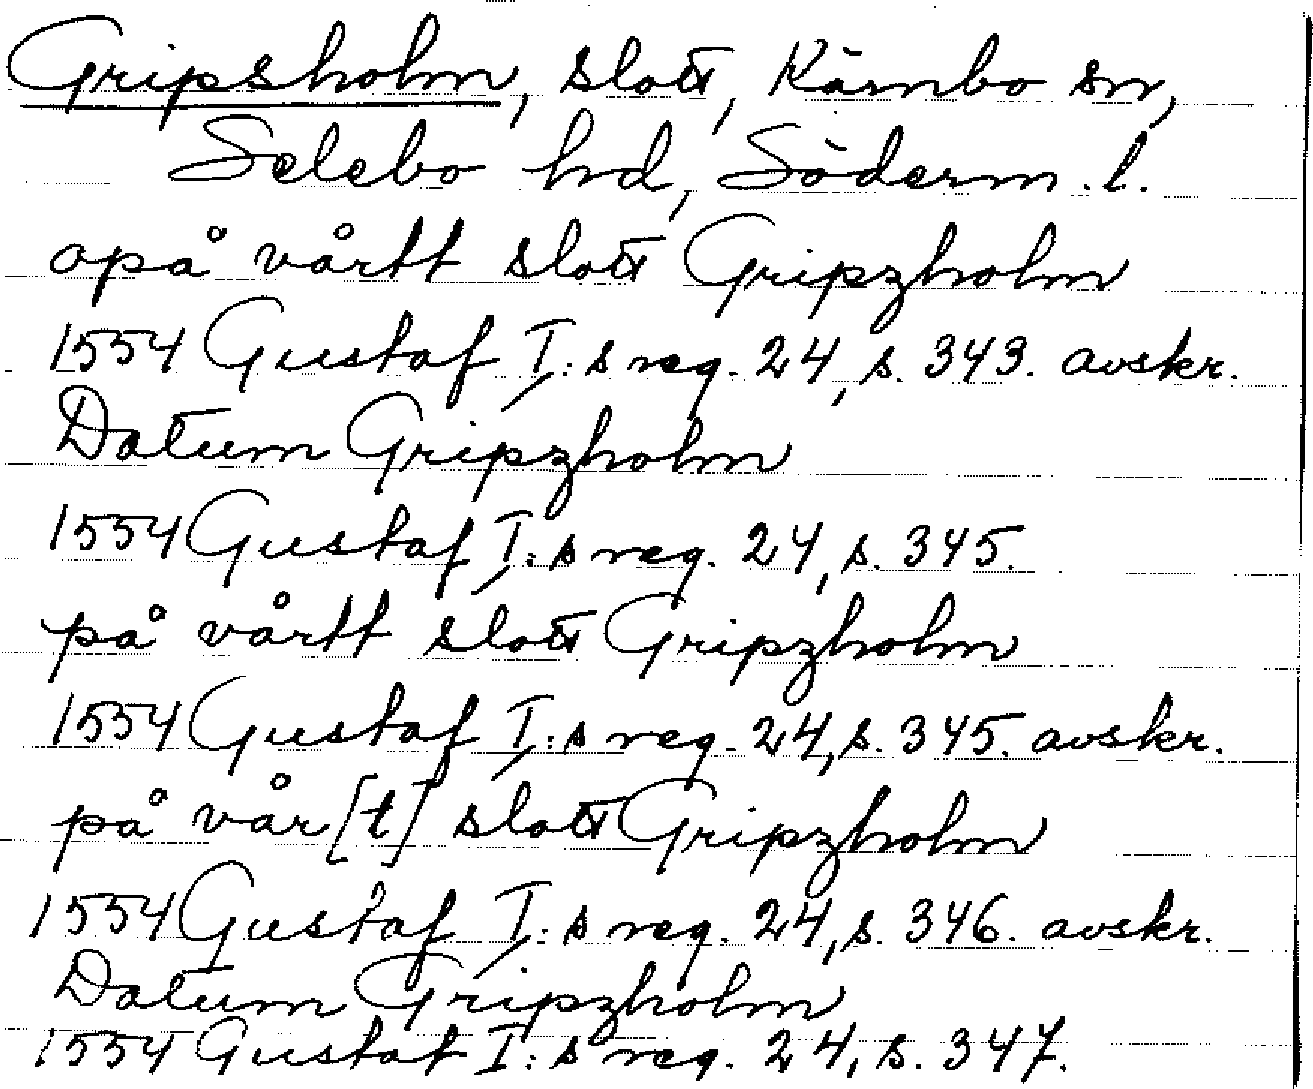 Gripsholm, slott, Kärnbo sn,
Selebo hd, Söderm. l.
opå vårtt slott Gripzholm
1554 Gustaf I:s reg. 24, s. 343. avskr.
Datum Gripzholm
1554 Gustaf I:s reg. 24, s. 345.
på vårtt slott Gripzholm
1554 Gustaf I:s reg. 24, s. 345. avskr.
på vår[t] slott Gripzholm
1554 Gustaf I:s reg. 24, s. 346. avskr.
Datum Gripzholm
1554 Gustaf I:s reg. 24, s. 347.